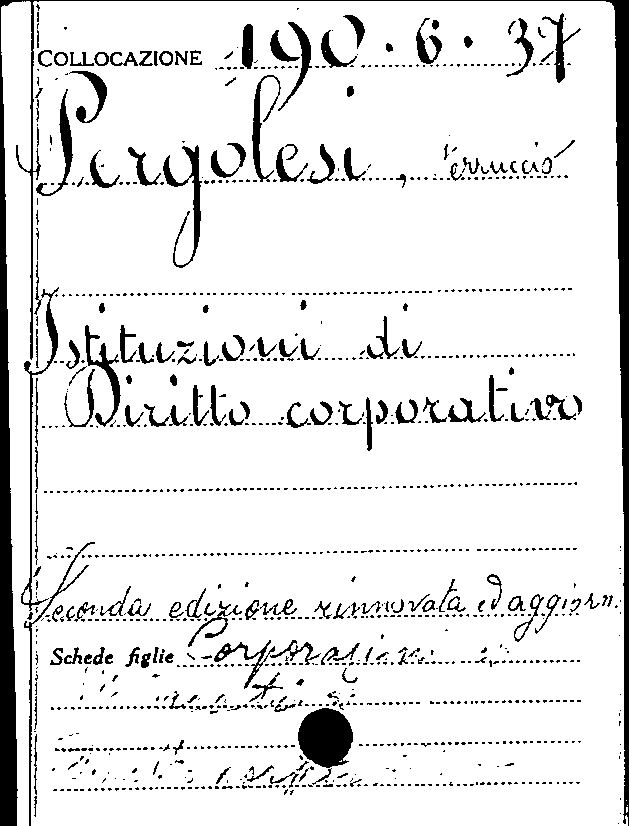 COLLOCAZIONE 190.6.37
Pergolesi, Ferruccio
Istituzioni di
Diritto corporativo
Seconda edizione rinnovata ed aggiorn.
Schede figlie Corporazioni